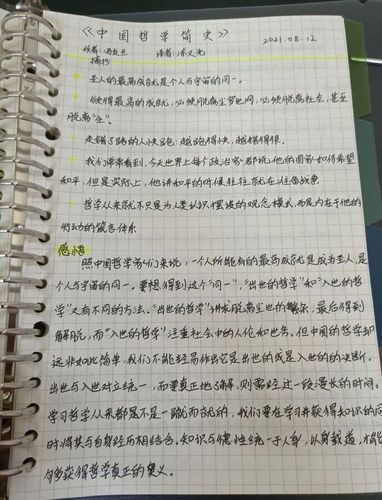 《中国哲学简史》
2021.08.12
作者:冯友兰 译者:涂又光
摘抄
圣人的最高成就是个人与宇宙的同一。
做得最高的成就,必须脱离尘罗世网,必须脱离社会,甚至
脱离“生”。
走错了路的人快跑:越跑得快,越错得很。
我们常常看到,今天世界上每个政治家都说他的国家如何希望
和平,但是实际上,他讲和平的时候往往就在准备战争
哲学从来就不只是为人类认识摆设的观念模式,而是内在于他的
行动的箴言体系
感悟
照中国哲学家们来说,一个人所能有的最高成就是成为圣人,是
个人与宇宙的同一。要想得到这个“同一”,“出世的哲学”和“入世的哲
学”又有不同的方法。“出世的哲学”讲求脱离尘世的繁杂,最后得到
解脱,而“入世的哲学”注重社会中的人伦和世务。但中国的哲学却
远非如此简单,我们不能轻易作出它是出世的或是入世的的决断。
出世与入世对立统一,而要真正地了解,则需经过一段漫长的时间。
学习哲学从来都是不是一蹴而就的,我们要在学习并获得知识的同
时将其与自身经历相结合。知识与德性统一于人身,以身载道,才能
够获得哲学真正的奥义。